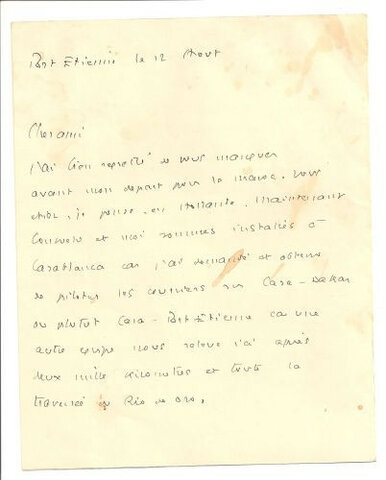 Port Etienne le 12 Aout
Cher ami
J'ai bien regretté de vous manquer
avant mon depart pour le Maroc. Vous
etiez, je pense, en Hollande. Maintenant
Consuelo et moi sommes installés à
Casablanca car j'ai demandé et obtenu
de piloter les courriers sur Casa-Dakar
ou plutot Casa-Port Etienne car une
autre equipe nous releve ici après
deux mille kilometres et toute la
traversée du Rio de Oro.